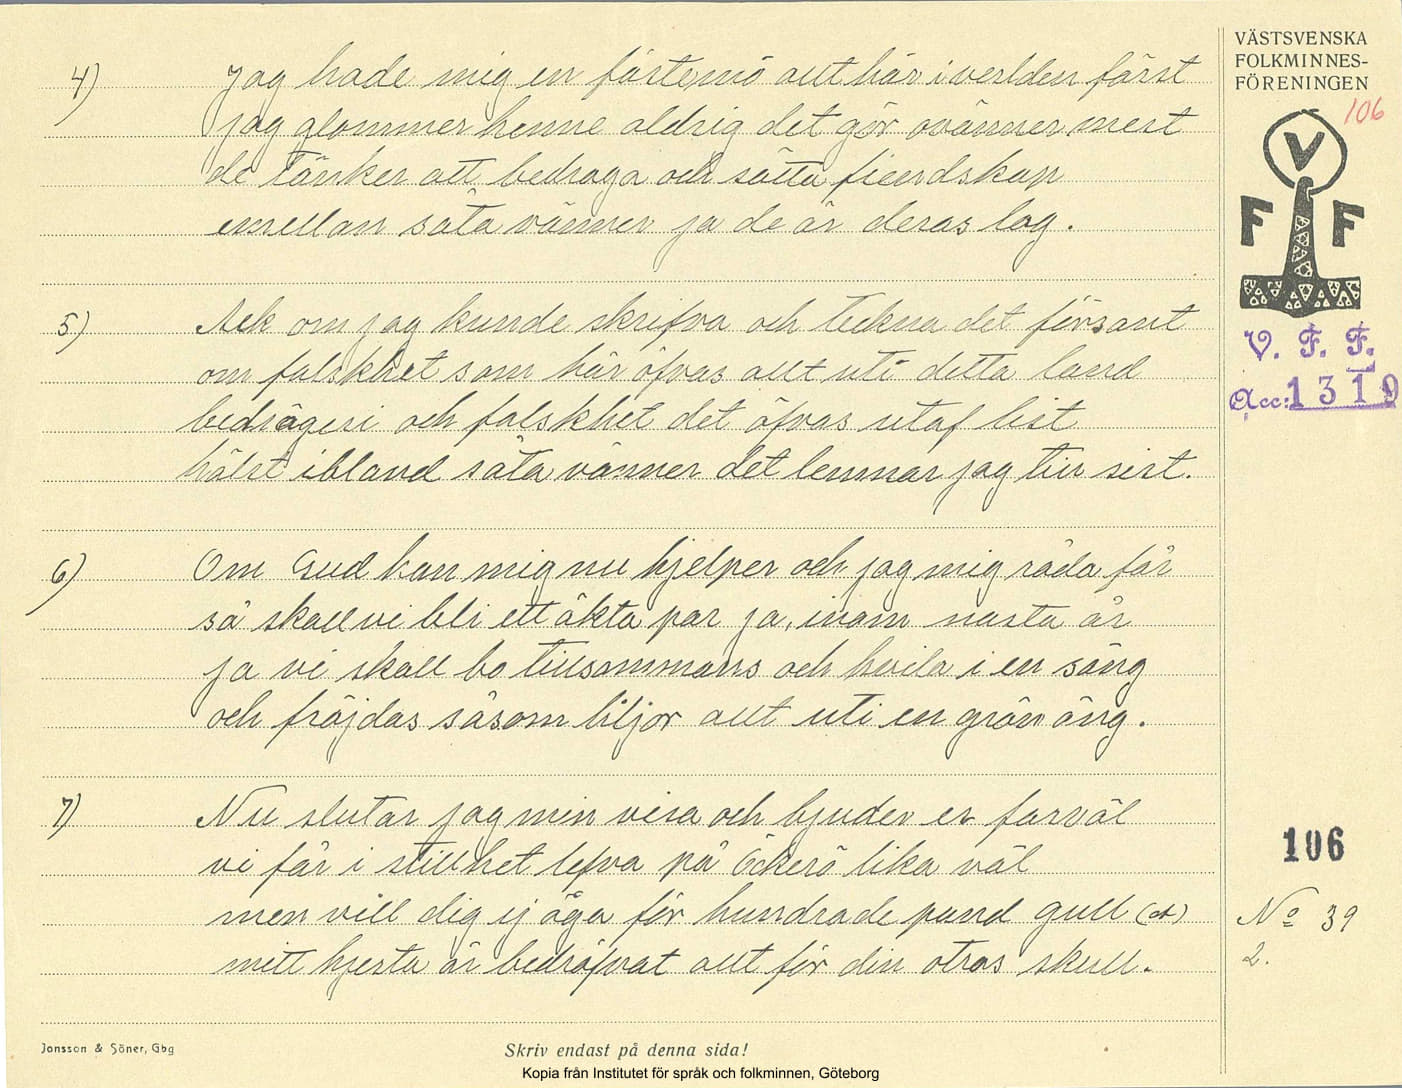 VÄSTSVENSKA
FOLKMINNES-
FÖRENINGEN
106
V
F F
V. F. F.
Acc: 1319
4) Jag hade mig en fästemö allt här i verlden först
jag glömmer henne aldrig det gör ovänner mest
de tänker att bedraga och sätta fiendskap
emellan såta vänner ja de är deras lag.
5) Ack om jag kunde skrifva och teckna det försant
om falskhet som här öfvas allt uti detta land
bedrägeri och falskhet det öfvas utaf list
hälst ibland såta vänner det lemnar jag till sist.
6) Om Gud han mig nu hjelper och jag mig råda får
så skall vi bli ett äkta par ja, inom nästa år
ja vi skall bo tillsammans och hvila i en säng
och fröjdas såsom liljor allt uti en grön äng.
7) Nu slutar jag min visa och bjuder er farväl
vi får i stillhet lefva på Öckerö lika väl
men vill dig ej äga för hundrade pund gull (et)
mitt hjerta är bedröfvat allt för din otros skull.
106
No 39
2.
Jonsson & Söner, Gbg
Skriv endast på denna sida!
Kopia från Institutet för språk och folkminnen, Göteborg